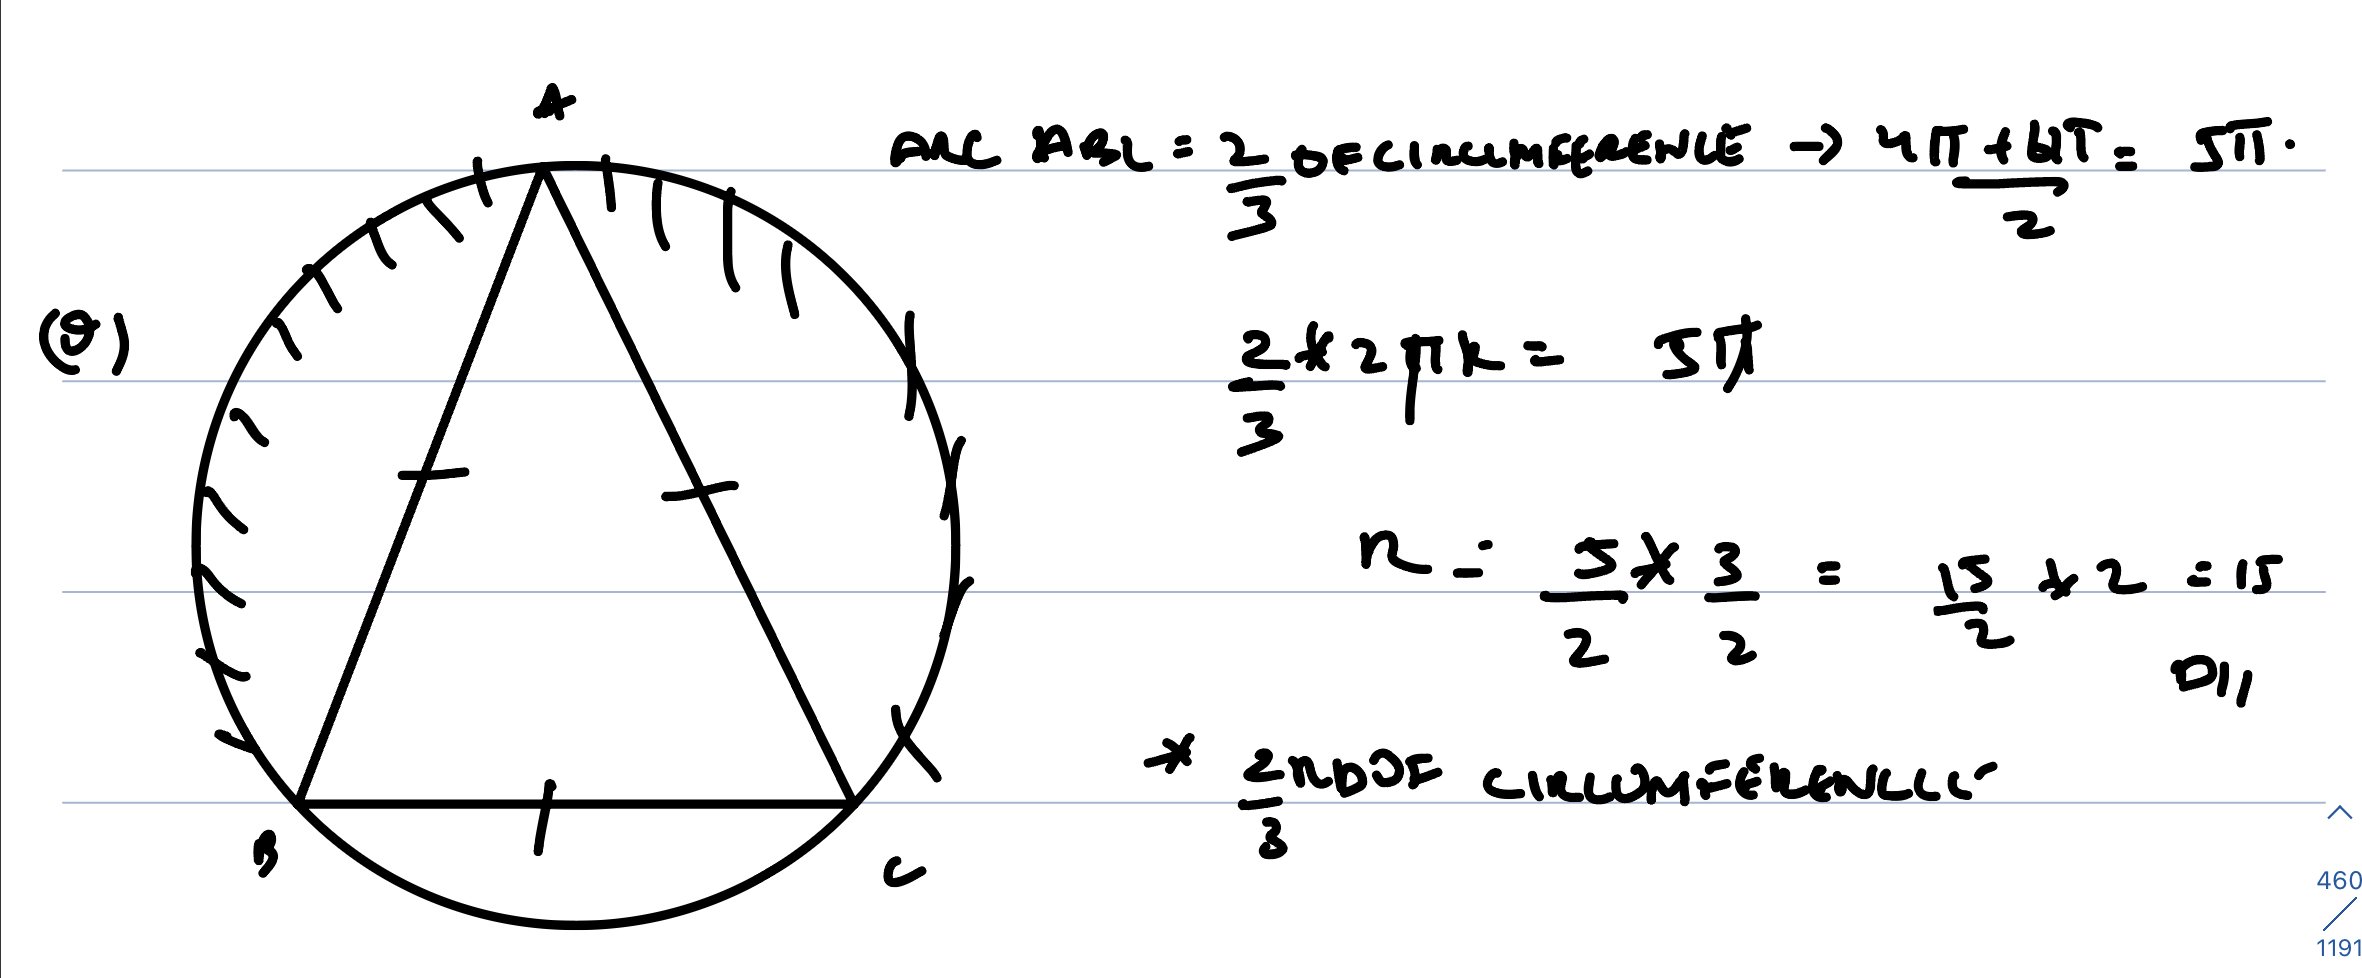 A
ARC ABC = 2/3 OF CIRCUMFERENCE → 4π + 6π / 2 = 5π.
(Q)
2/3 * 2πR = 5π
R = 5/2 * 3/2 = 15/2 * 2 = 15
D//
* 2/3 RD OF CIRCUMFERENCE
B
C
460
/
1191